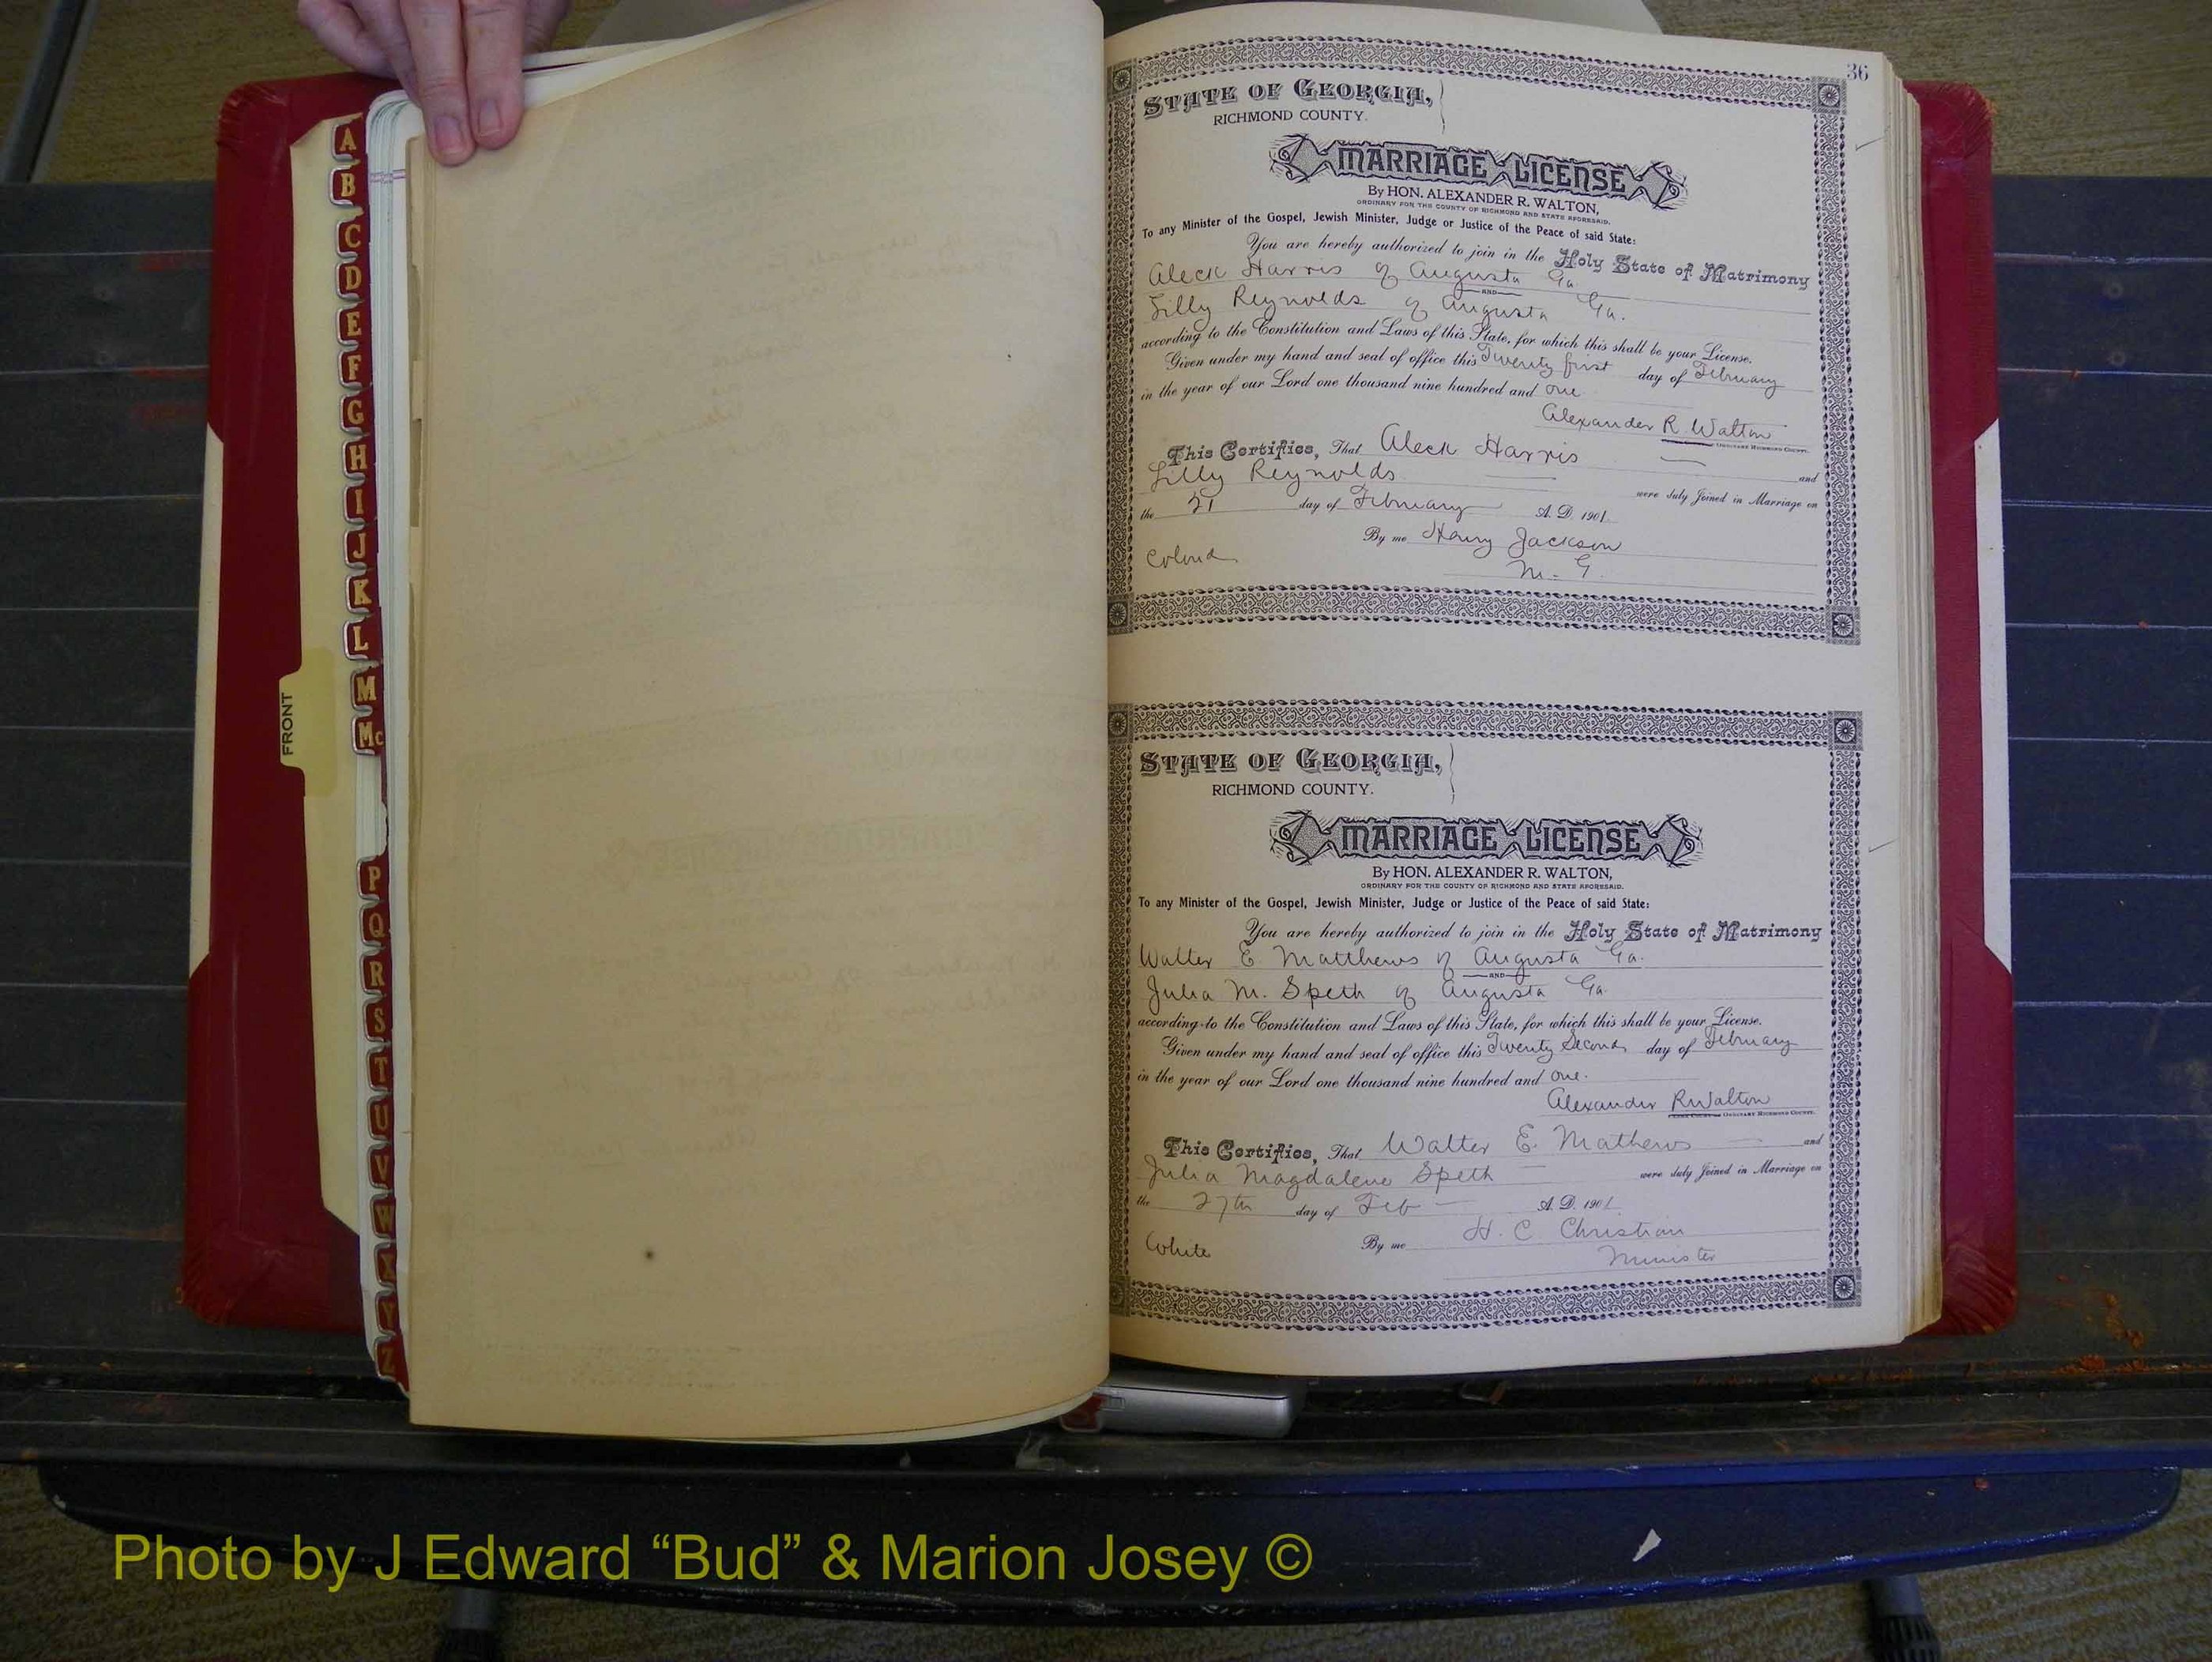 A
B
C
D
E
F
G
H
I
J
K
L
M
Mc
P
Q
R
S
T
U
V
W
X
Y
Z
FRONT
36
STATE OF GEORGIA,
RICHMOND COUNTY.
MARRIAGE LICENSE
By HON. ALEXANDER R. WALTON,
ORDINARY FOR THE COUNTY OF RICHMOND AND STATE AFORESAID.
To any Minister of the Gospel, Jewish Minister, Judge or Justice of the Peace of said State:
You are hereby authorized to join in the Holy State of Matrimony
Aleck Harris of Augusta Ga.
AND
Lilly Reynolds of Augusta Ga.
according to the Constitution and Laws of this State, for which this shall be your License.
Given under my hand and seal of office this Twenty first day of February
in the year of our Lord one thousand nine hundred and one
Alexander R. Walton
ORDINARY RICHMOND COUNTY.
This Certifies, That Aleck Harris and
Lilly Reynolds were duly Joined in Marriage on
the 21 day of February A. D. 1901
By me Henry Jackson
Colored M. G.
STATE OF GEORGIA,
RICHMOND COUNTY.
MARRIAGE LICENSE
By HON. ALEXANDER R. WALTON,
ORDINARY FOR THE COUNTY OF RICHMOND AND STATE AFORESAID.
To any Minister of the Gospel, Jewish Minister, Judge or Justice of the Peace of said State:
You are hereby authorized to join in the Holy State of Matrimony
Walter E. Matthews of Augusta Ga.
AND
Julia M. Speth of Augusta Ga.
according to the Constitution and Laws of this State, for which this shall be your License.
Given under my hand and seal of office this Twenty Second day of February
in the year of our Lord one thousand nine hundred and one.
Alexander R Walton
ORDINARY RICHMOND COUNTY.
This Certifies, That Walter E. Mathews and
Julia Magdalene Speth were duly Joined in Marriage on
the 27th day of Feb A. D. 1901
By me H. C. Christian
White Minister
Photo by J Edward “Bud” & Marion Josey ©